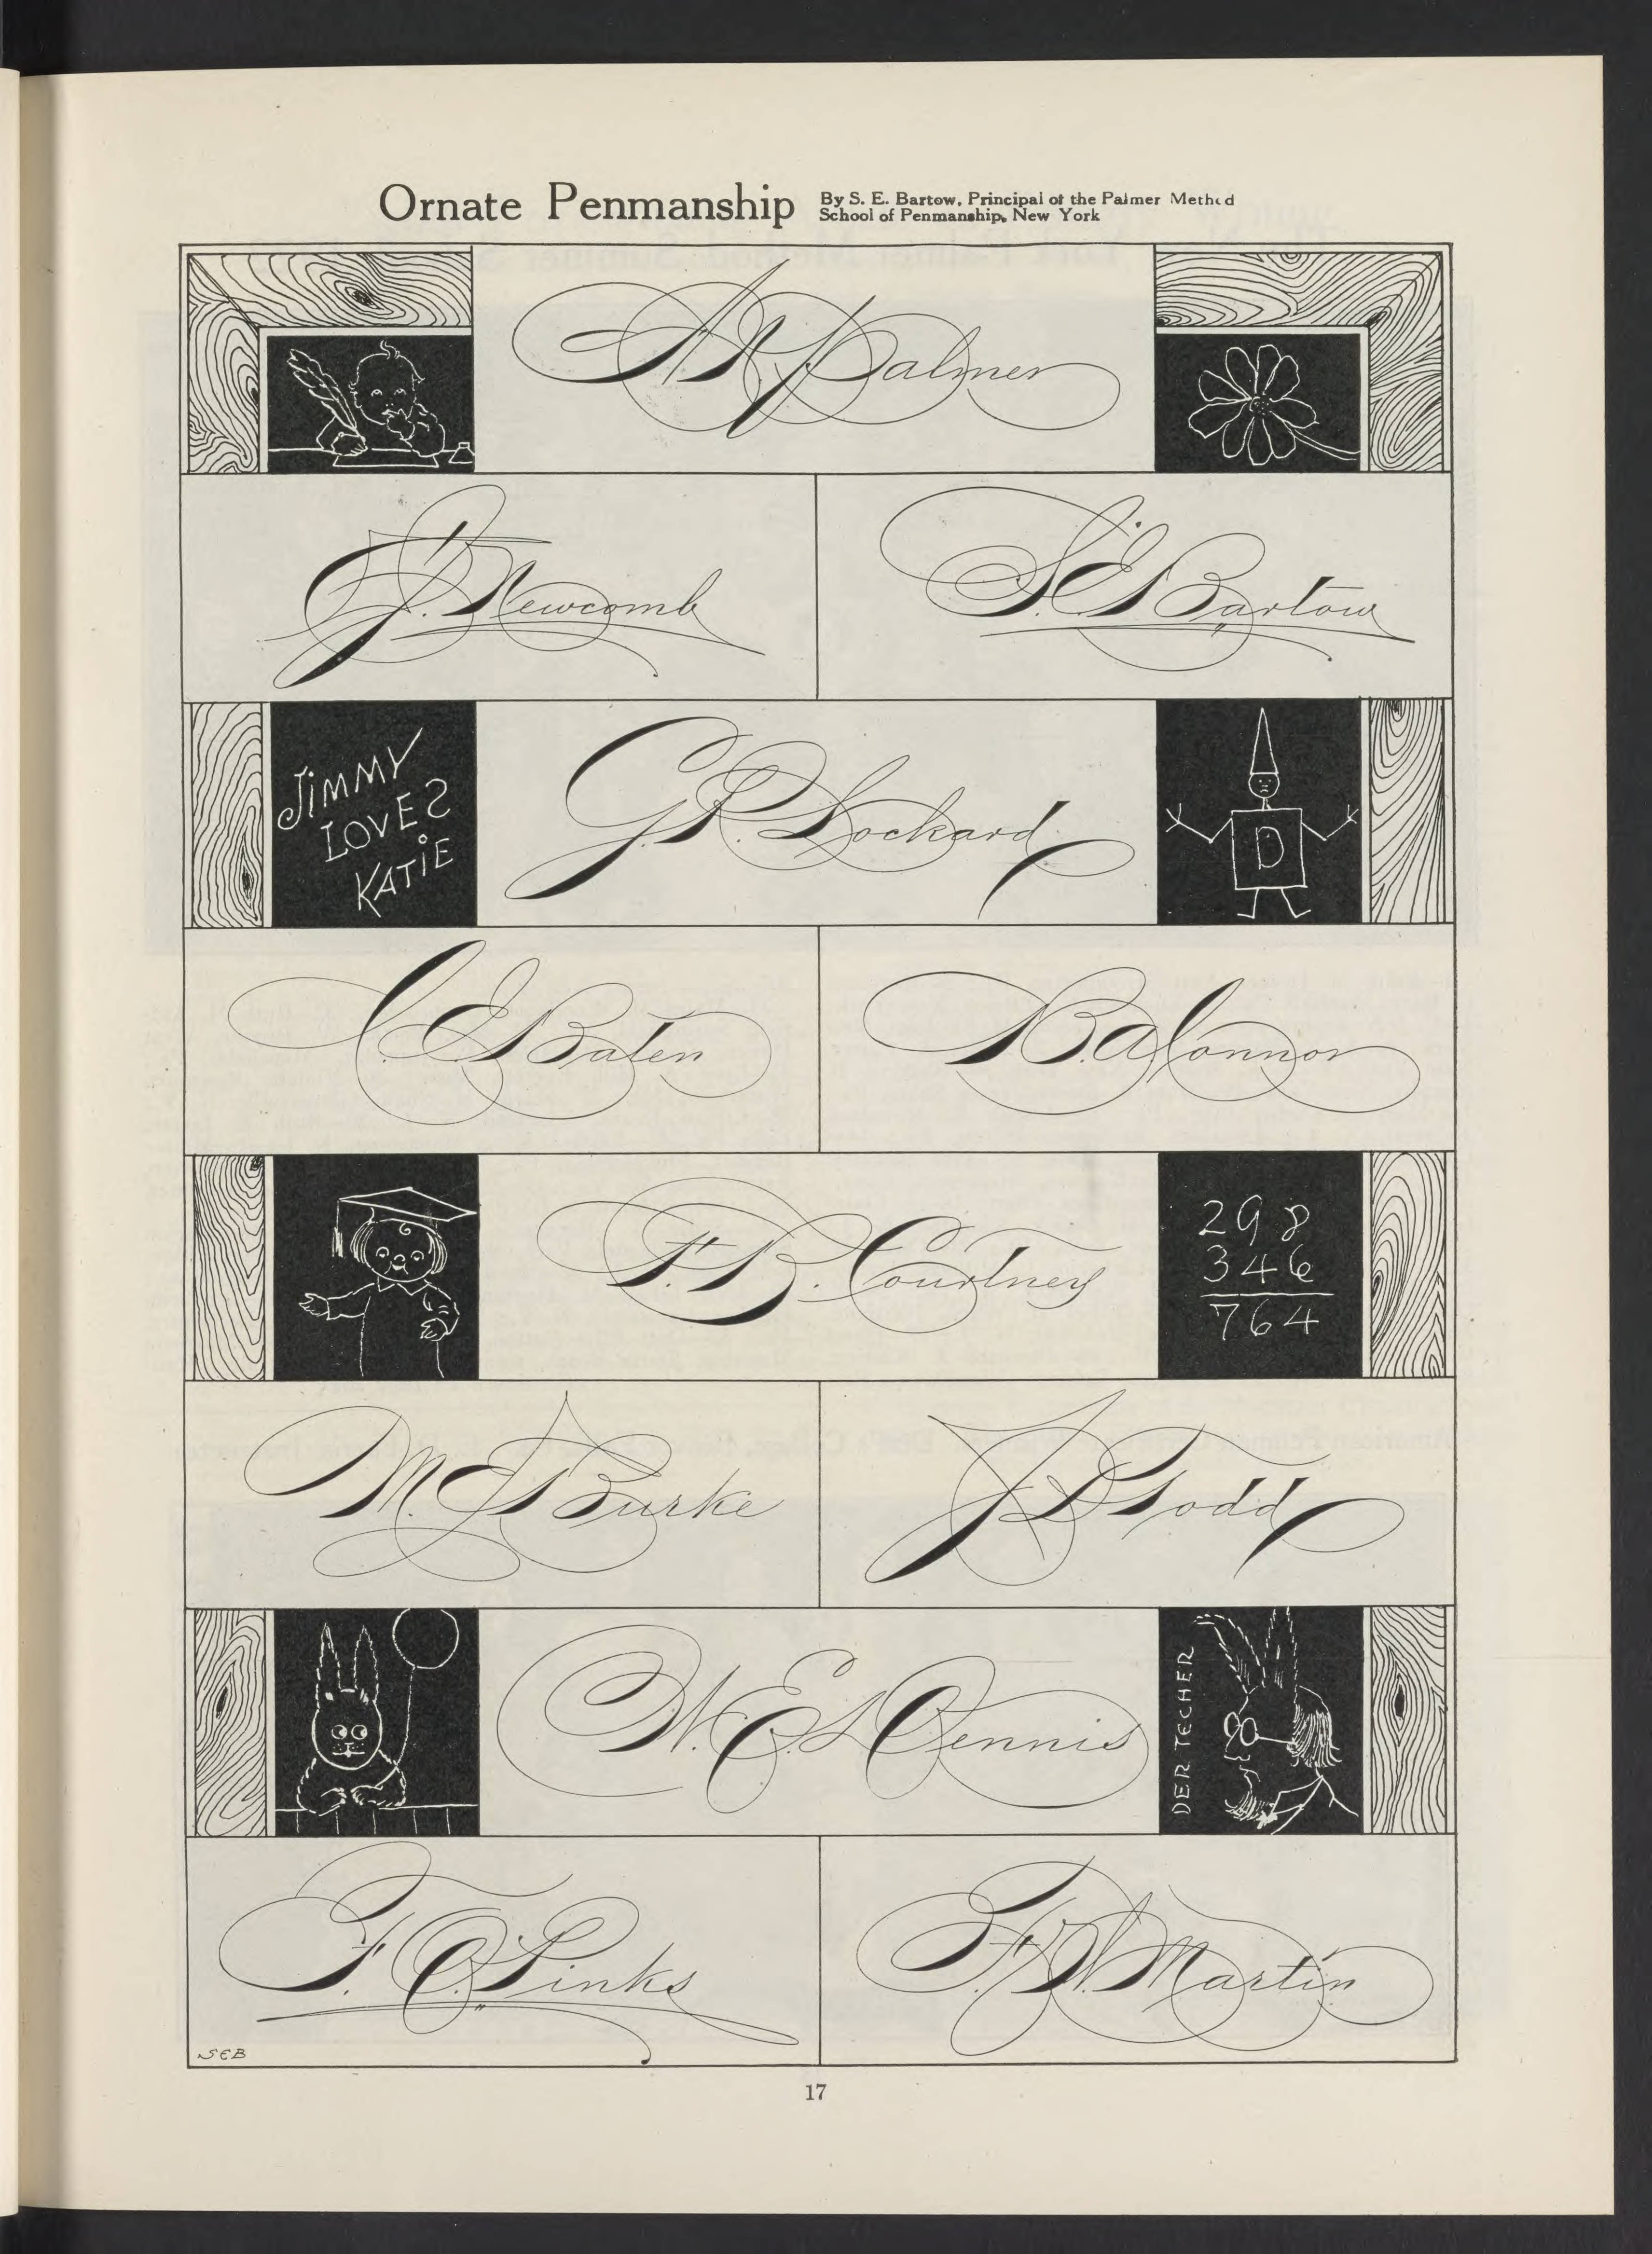 Ornate Penmanship
By S. E. Bartow, Principal of the Palmer Method
School of Penmanship, New York
A N Palmer
J. B. Newcomb
S. E. Bartow
JIMMY
LOVES
KATIE
G. R. Lockard
D
C. E. Baten
B. A. Connor
F. B. Courtney
298
346
764
M. E. Burke
J. P. Todd
W. E. Dennis
DER TECHER
F. O. Pinks
F. W. Martin
SEB
17